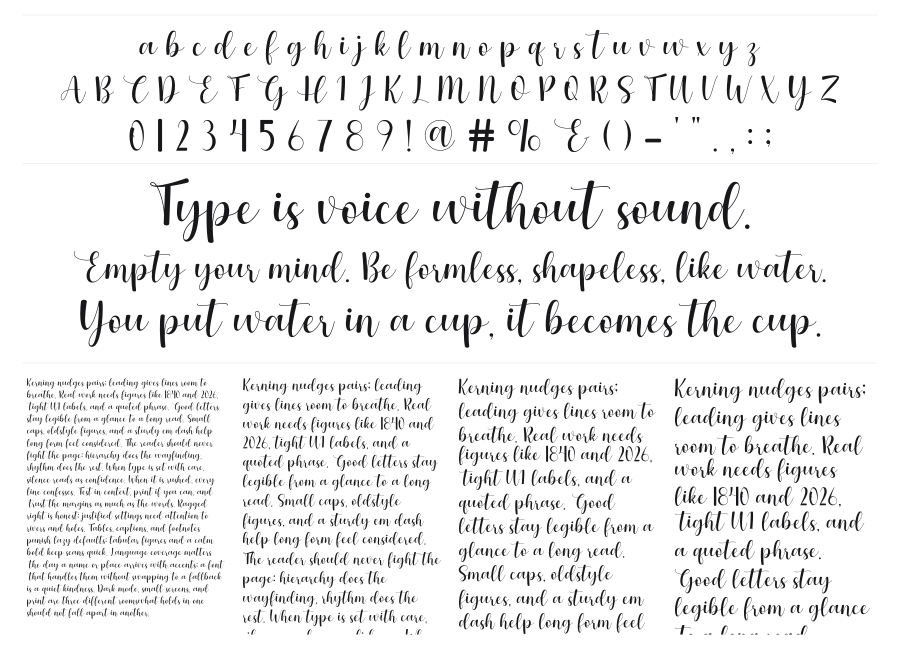 a b c d e f g h i j k l m n o p q r s t u v w x y z
A B C D E F G H I J K L M N O P Q R S T U V W X Y Z
0 1 2 3 4 5 6 7 8 9 ! @ # % & ( ) - ' " . , : ;
Type is voice without sound.
Empty your mind. Be formless, shapeless, like water.
You put water in a cup, it becomes the cup.
Kerning nudges pairs; leading gives lines room to
breathe. Real work needs figures like 1840 and 2026,
tight UI labels, and a quoted phrase. Good letters
stay legible from a glance to a long read. Small
caps, oldstyle figures, and a sturdy em dash help
long form feel considered. The reader should never
fight the page: hierarchy does the wayfinding,
rhythm does the rest. When type is set with care,
silence reads as confidence. When it is rushed, every
line confesses. Test in context, print if you can, and
trust the margins as much as the words. Ragged
right is honest; justified settings need attention to
rivers and holes. Tables, captions, and footnotes
punish lazy defaults; tabular figures and a calm
bold keep scans quick. Language coverage matters
the day a name or place arrives with accents; a font
that handles them without swapping to a fallback
is a quiet kindness. Dark mode, small screens, and
print are three different rooms; what holds in one
should not fall apart in another.
Kerning nudges pairs; leading
gives lines room to breathe. Real
work needs figures like 1840 and
2026, tight UI labels, and a
quoted phrase. Good letters stay
legible from a glance to a long
read. Small caps, oldstyle
figures, and a sturdy em dash
help long form feel considered.
The reader should never fight the
page: hierarchy does the
wayfinding, rhythm does the
rest. When type is set with care,
Kerning nudges pairs;
leading gives lines room to
breathe. Real work needs
figures like 1840 and 2026,
tight UI labels, and a
quoted phrase. Good
letters stay legible from a
glance to a long read.
Small caps, oldstyle
figures, and a sturdy em
dash help long form feel
Kerning nudges pairs;
leading gives lines
room to breathe. Real
work needs figures
like 1840 and 2026,
tight UI labels, and
a quoted phrase.
Good letters stay
legible from a glance
to a long read.